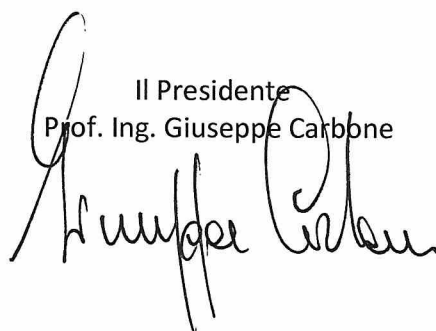 Il Presidente
Prof. Ing. Giuseppe Carbone
Giuseppe Carbone